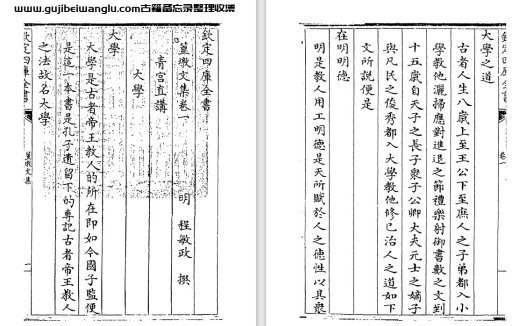 www.gujibeiwanglu.com古籍备忘录整理收集
欽定四庫全書
篁墩文集卷一
明 程敏政 撰
青宮直講
大學
大學
大學是古者帝王教人的所在即如今國子監便
是這一本書是孔子遺留下的專記古者帝王教人
之法故名大學
欽定四庫全書
篁墩文集
欽定四庫全書
卷一
大學之道
古者人生八歲上至王公下至庶人之子弟都入小
學教他灑掃應對進退之節禮樂射御書數之文到
十五歲自天子之長子衆子公卿大夫元士之嫡子
與凡民之俊秀都入大學教他修已治人之道如下
文所說便是
在明明德
明是教人用工明德是天所賦於人之德性以具衆